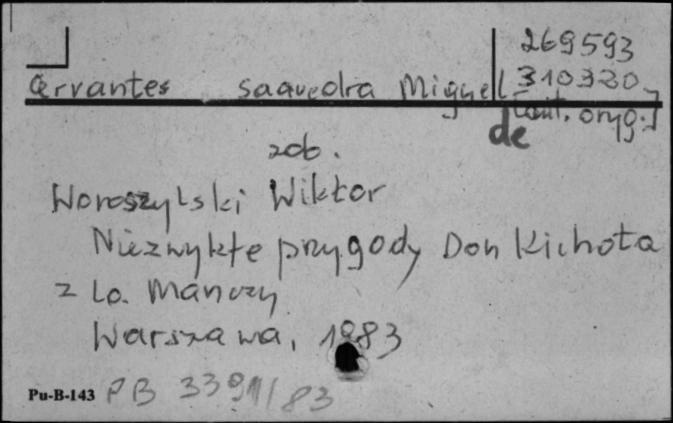 269593
Cervantes Saavedra Miguel 310320
de [aut. oryg.]
zob.
Woroszylski Wiktor
Niezwykłe przygody Don Kichota
z La Manczy
Warszawa, 1983
Pu-B-143 PB 3391/83